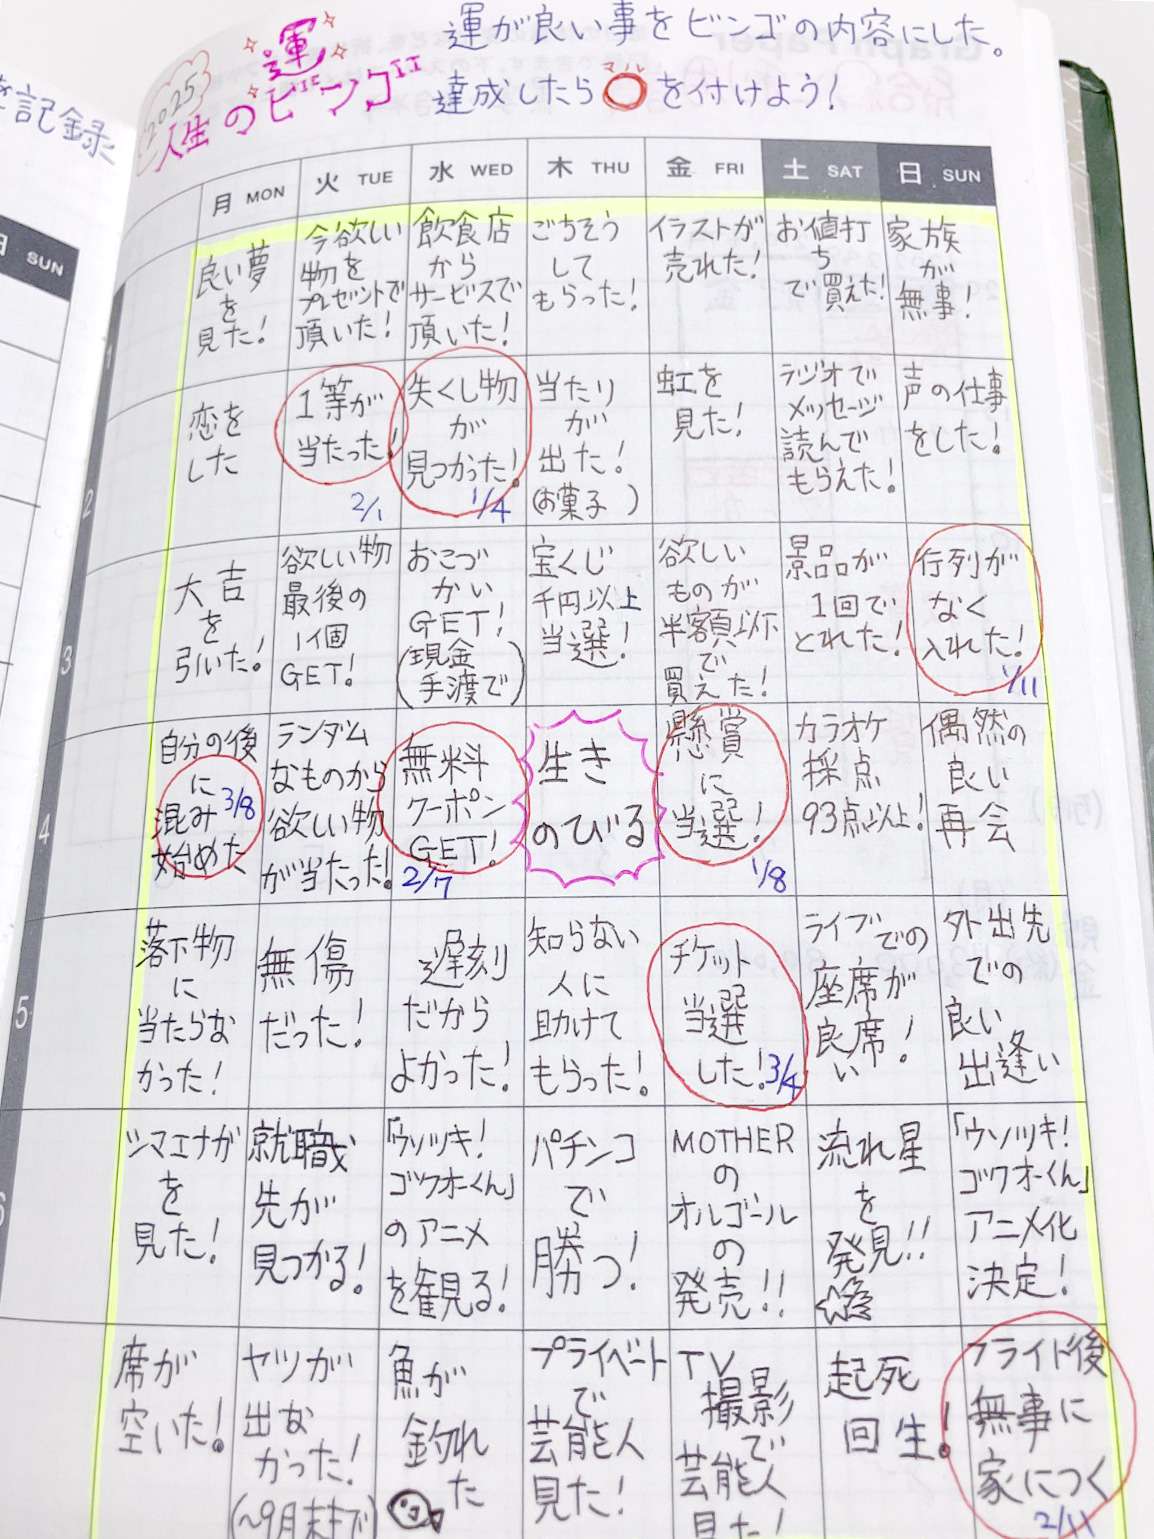 を記録
SUN
2025
人生の運のビンゴ!!
運が良い事をビンゴの内容にした。
マル
達成したら○を付けよう!
月 MON
火 TUE
水 WED
木 THU
金 FRI
土 SAT
日 SUN
1
良い夢
を
見た!
今欲しい
物を
プレゼントで
頂いた!
飲食店
から
サービスで
頂いた!
ごちそう
して
もらった!
イラストが
売れた!
お値打
ち
で買えた!
家族
が
無事!
2
恋を
した
1等が
当たった!
2/1
失くし物
が
見つかった!
1/4
当たり
が
出た!
(お菓子)
虹を
見た!
ラジオで
メッセージ
読んで
もらえた!
声の仕事
をした!
3
大吉
を
引いた!
欲しい物
最後の
1個
GET!
おこづ
かい
GET!
(現金
手渡で)
宝くじ
千円以上
当選!
欲しい
ものが
半額以下
で
買えた!
景品が
1回で
とれた!
行列が
なく
入れた!
1/11
4
自分の後
に
混み
始めた
3/8
ランダム
なものから
欲しい物
が当たった!
無料
クーポン
GET!
2/7
生き
のびる
懸賞
に
当選!
1/8
カラオケ
採点
93点以上!
偶然の
良い
再会
5
落下物
に
当たらな
かった!
無傷
だった!
遅刻
だから
よかった!
知らない
人に
助けて
もらった!
チケット
当選
した!
3/4
ライブでの
座席が
良席!
い
外出先
での
良い
出逢い
6
シマエナガ
を
見た!
就職
先が
見つかる!
「ウソツキ!
ゴクオーくん」
のアニメ
を観る!
パチンコ
で
勝つ!
MOTHER
の
オルゴール
の
発売!!
流れ星
を
発見!!
「ウソツキ!
ゴクオーくん」
アニメ化
決定!
席が
空いた!
ヤツが
出な
かった!
(~9月末まで)
魚が
釣れ
た
プライベート
で
芸能人
見た!
TV
撮影
で
芸能人
見た!
起死
回生!
フライト後
無事に
家につく
2/11